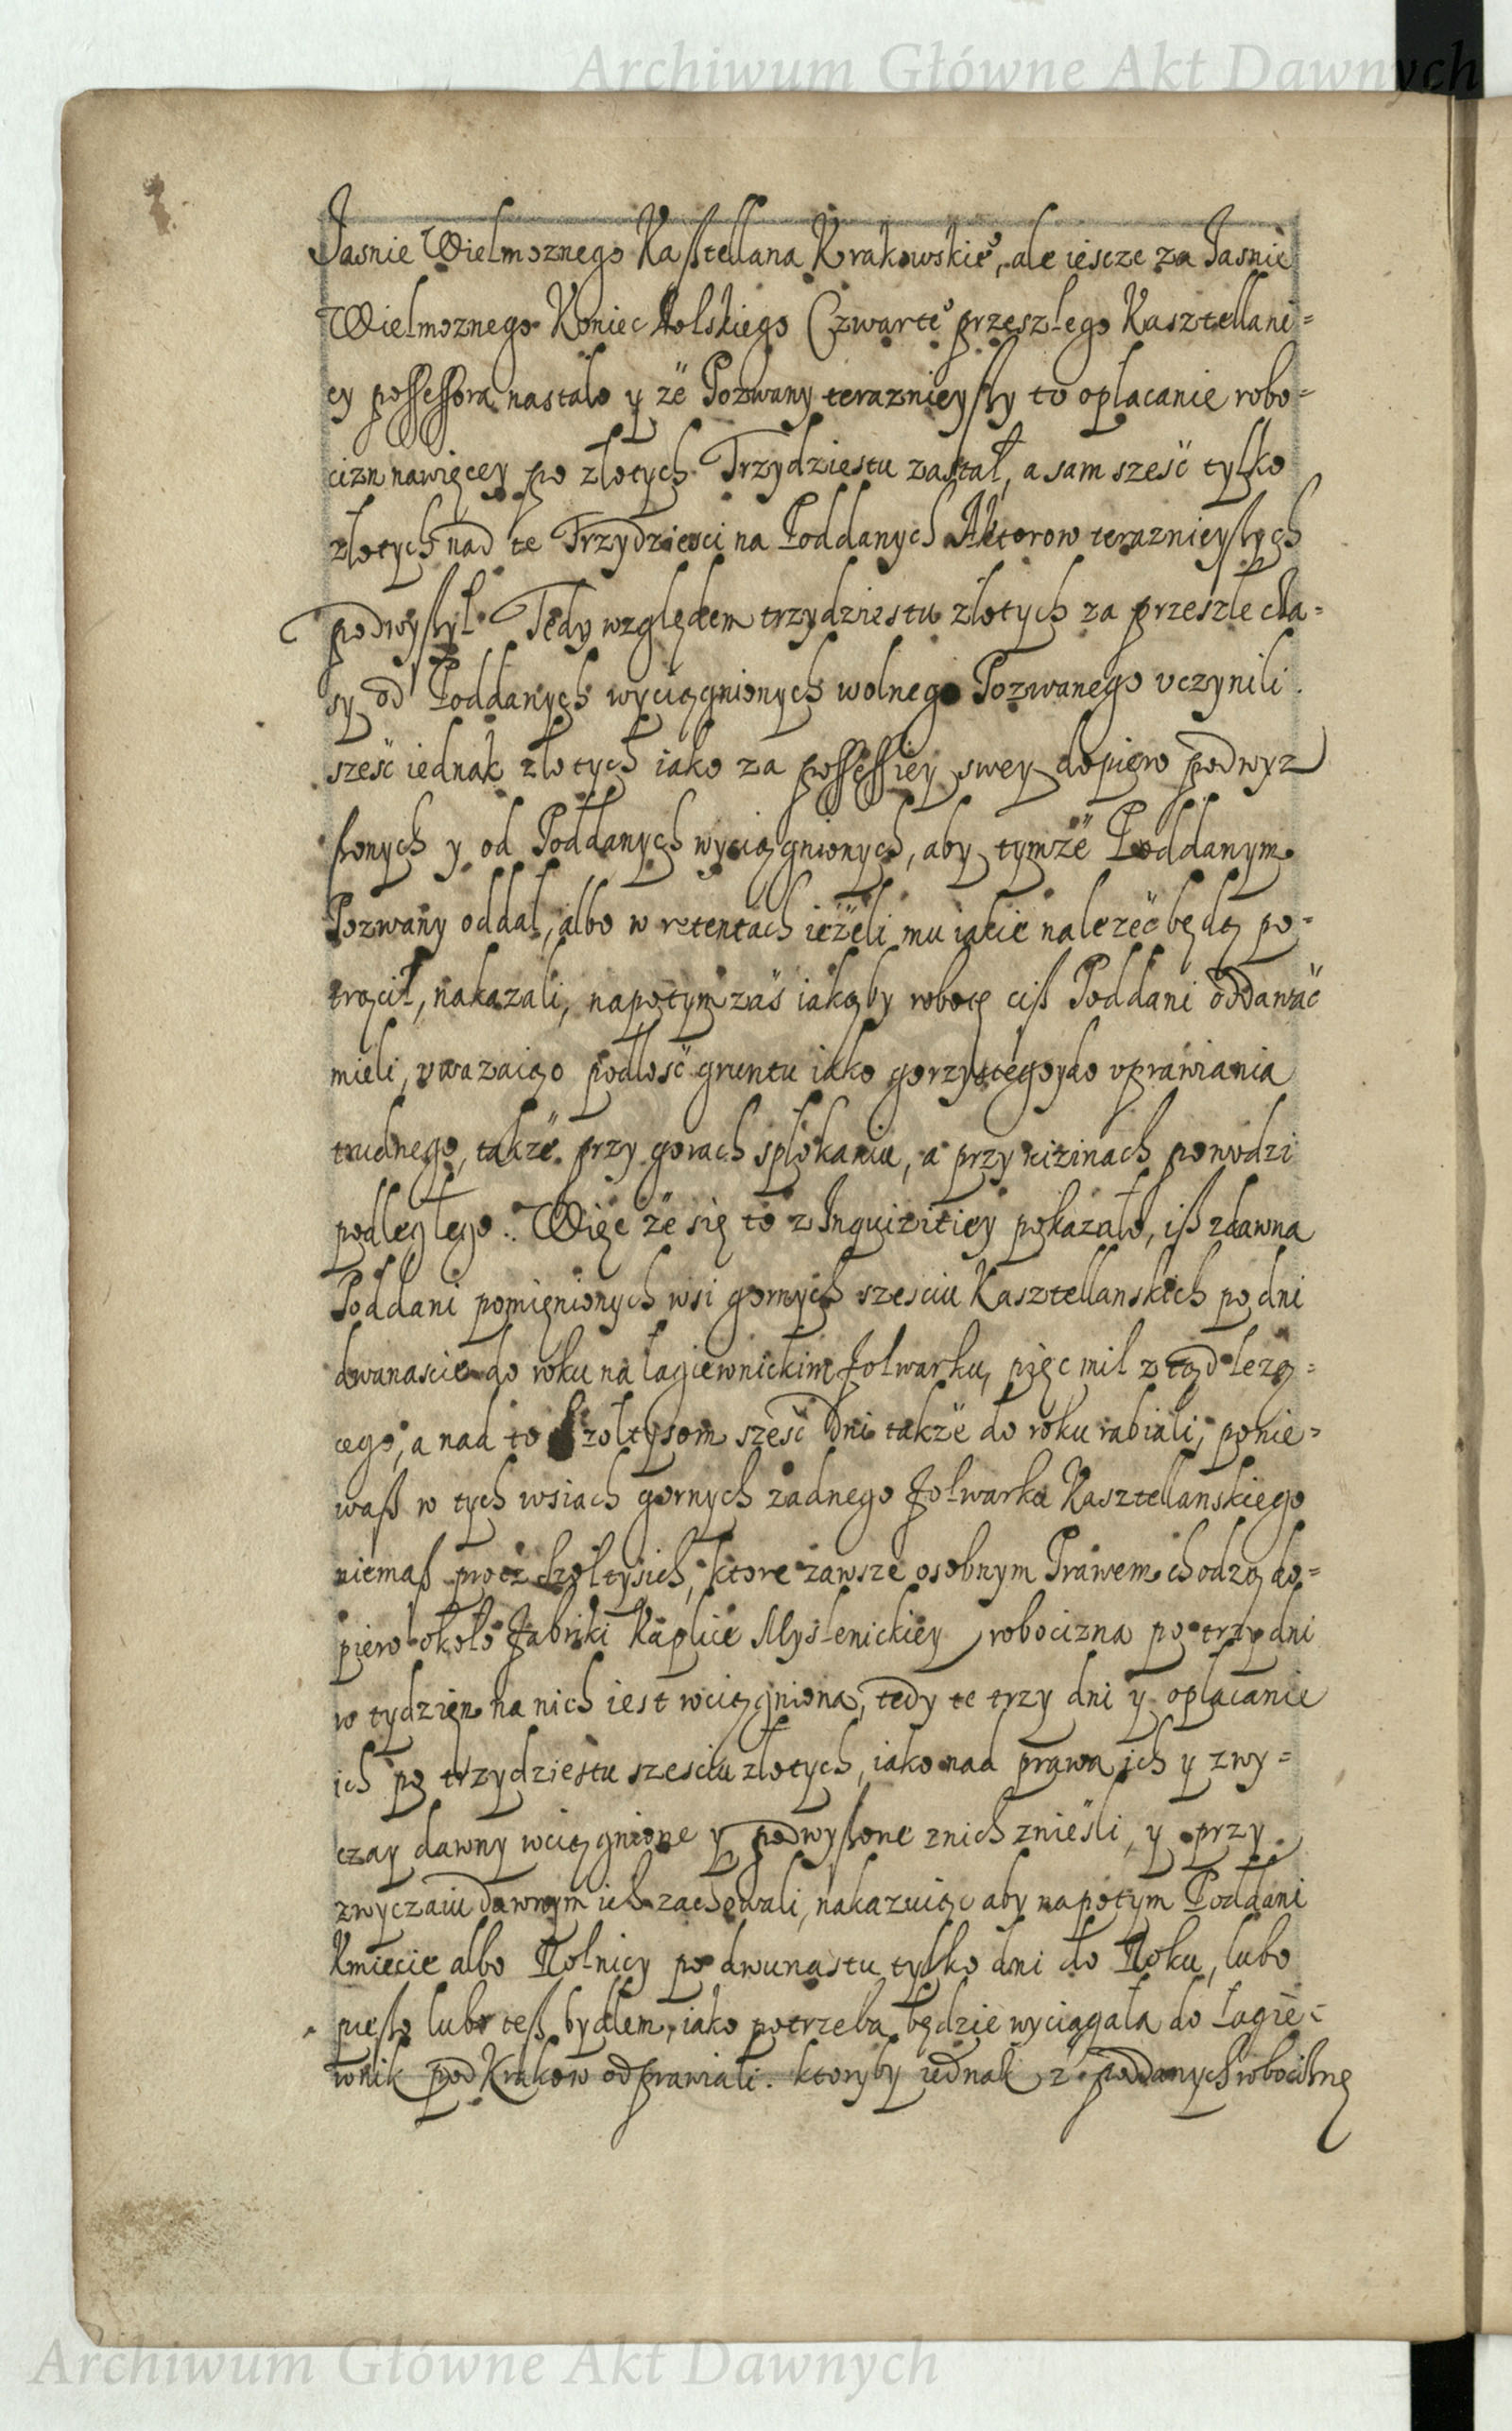 Archiwum Główne Akt Dawnych
Jasnie Wielmoznego Kaßtellana Krakowskieº, ale iescze za Jasnie
Wielmoznego Koniec Polskiego Czwarteº przeszlego Kasztellani=
ey possessora nastalo y że Pozwany teraznieyßy to oplacanie robo=
cizn nawięcey po zlotych Trzydziestu zastał, a sam sześć tylko
zlotych nad te Trzydziesci na Poddanych Aktorow teraznieyßych
podwyßył. Tedy względem trzydziestu zlotych za przeszle cza=
sy od Poddanych wyciągnionych wolnego Pozwanego vczynili.
sześć iednak zlotych iako za possessiey swey dopiero podwyz
ßonych y od Poddanych wyciągnionych, aby tymże Poddanym
Pozwany oddał, albo w retentach ieżeli mu iakie należeć będą po=
trącił, nakazali, napotym zaś iakąby robotę ciß Poddani oddawać
mieli, vwazaiąc podłość gruntu iako gorzystego y do vprawiania
trudnego, także przy gorach spłokaniu, a przy nizinach powodzi
podległego. Więc że się to z Inquizitiey pokazało, iß zdawna
Poddani pomienionych wsi gornych szesciu Kasztellanskich po dni
dwanascie do roku na łagiewnickim folwarku, pięc mil ztąd leżą=
cego, a nad to Szoltysom sześć dni także do roku rabiali, ponie=
waß w tych wsiach gornych żadnego folwarku Kasztellanskiego
niemaß procz Szoltysich, ktore zawsze osobnym Prawem chodzą do=
piero około fabriki Kaplice Myslenickiey robocizna po trzy dni
w tydzien na nich iest wciągniona, tedy te trzy dni y oplacanie
ich po trzydziestu szesciu złotych, iako nad prawa ich y zwy=
czay dawny wciągnione y podwyßone znich znieśli, y przy
zwyczaiu dawnym ich zachowali, nakazuiąc aby napotym Poddani
Kmiecie albo Rolnicy po dwunastu tylko dni do Roku, lubo
pießo lubo teß bydłem, iako potrzeba będzie wyciągala do Łagie=
wnik pod Krakow odprawiali. ktoryby iednak z poddanych robociznę
Archiwum Główne Akt Dawnych